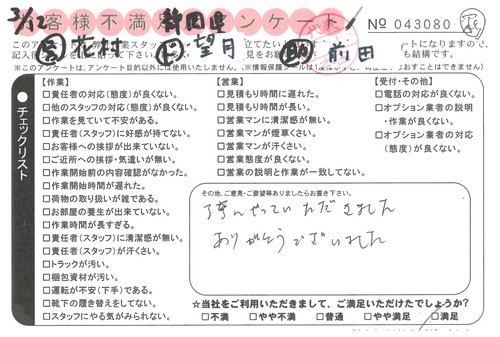 3/12 客様不満 静岡県 ンケート
No 043080
営 志村 作 望月 助 前田
●チェックリスト
【作業】
□責任者の対応(態度)が良くない。
□他のスタッフの対応(態度)が良くない。
□作業を見ていて不安がある。
□責任者(スタッフ)に好感が持てない。
□お客様への挨拶が出来ていない。
□ご近所への挨拶・気遣いが無い。
□作業開始前の内容確認がなかった。
□作業開始時間が遅れた。
□荷物の取り扱いが雑である。
□お部屋の養生が出来ていない。
□作業時間が長すぎる。
□責任者(スタッフ)に清潔感が無い。
□責任者(スタッフ)が汗くさい。
□トラックが汚い。
□梱包資材が汚い。
□運転が不安(下手)である。
□靴下の履き替えをしてない。
□スタッフにやる気がみられない。
【営業】
□見積もり時間に遅れた。
□見積もり時間が長い。
□営業マンに清潔感が無い。
□営業マンが煙草くさい。
□営業マンが汗くさい。
□営業態度が良くない。
□営業の説明と作業が一致してない。
【受付・その他】
□電話の対応が良くない。
□オプション業者の説明・作業が良くない。
□オプション業者の対応(態度)が良くない。
その他、ご意見・ご要望等ありましたらお書き下さい。
丁寧にやっていただきました
ありがとうございました
☆当社をご利用いただきまして、ご満足いただけたでしょうか?
□不満 □やや不満 □普通 □やや満足 □満足